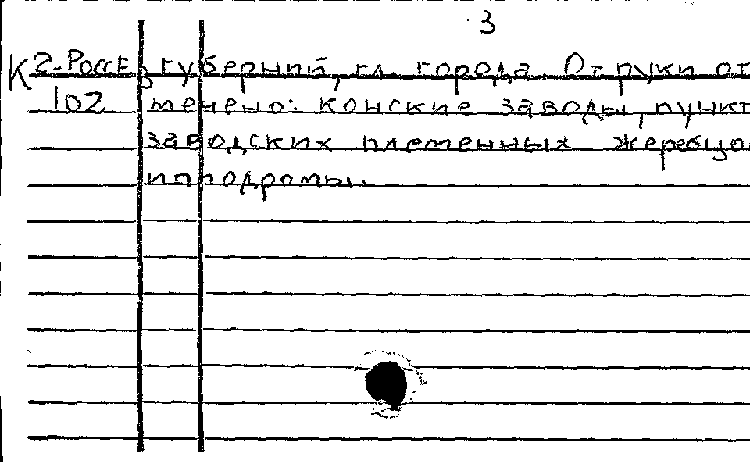 3
К 2-Росс Е губерний, гл. города. От руки от
102 мечено: конские заводы, пункт
заводских племенных жеребцо
ипподромы.